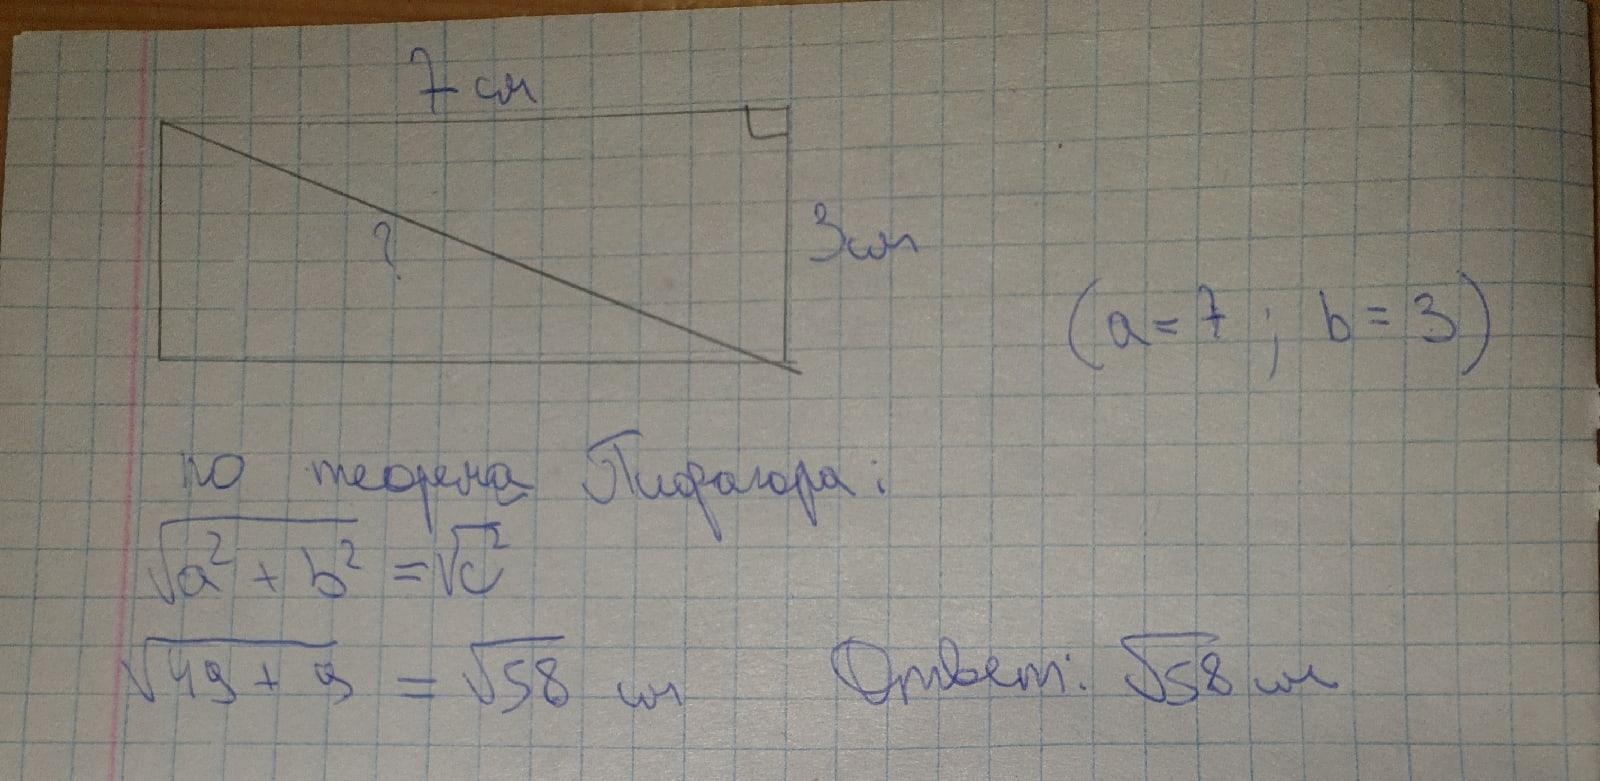 7 см
?
3см
(a = 7 ; b = 3)
по теорема Пифагора:
√a² + b² = √c²
√49 + 9 = √58 см
Ответ: √58 см